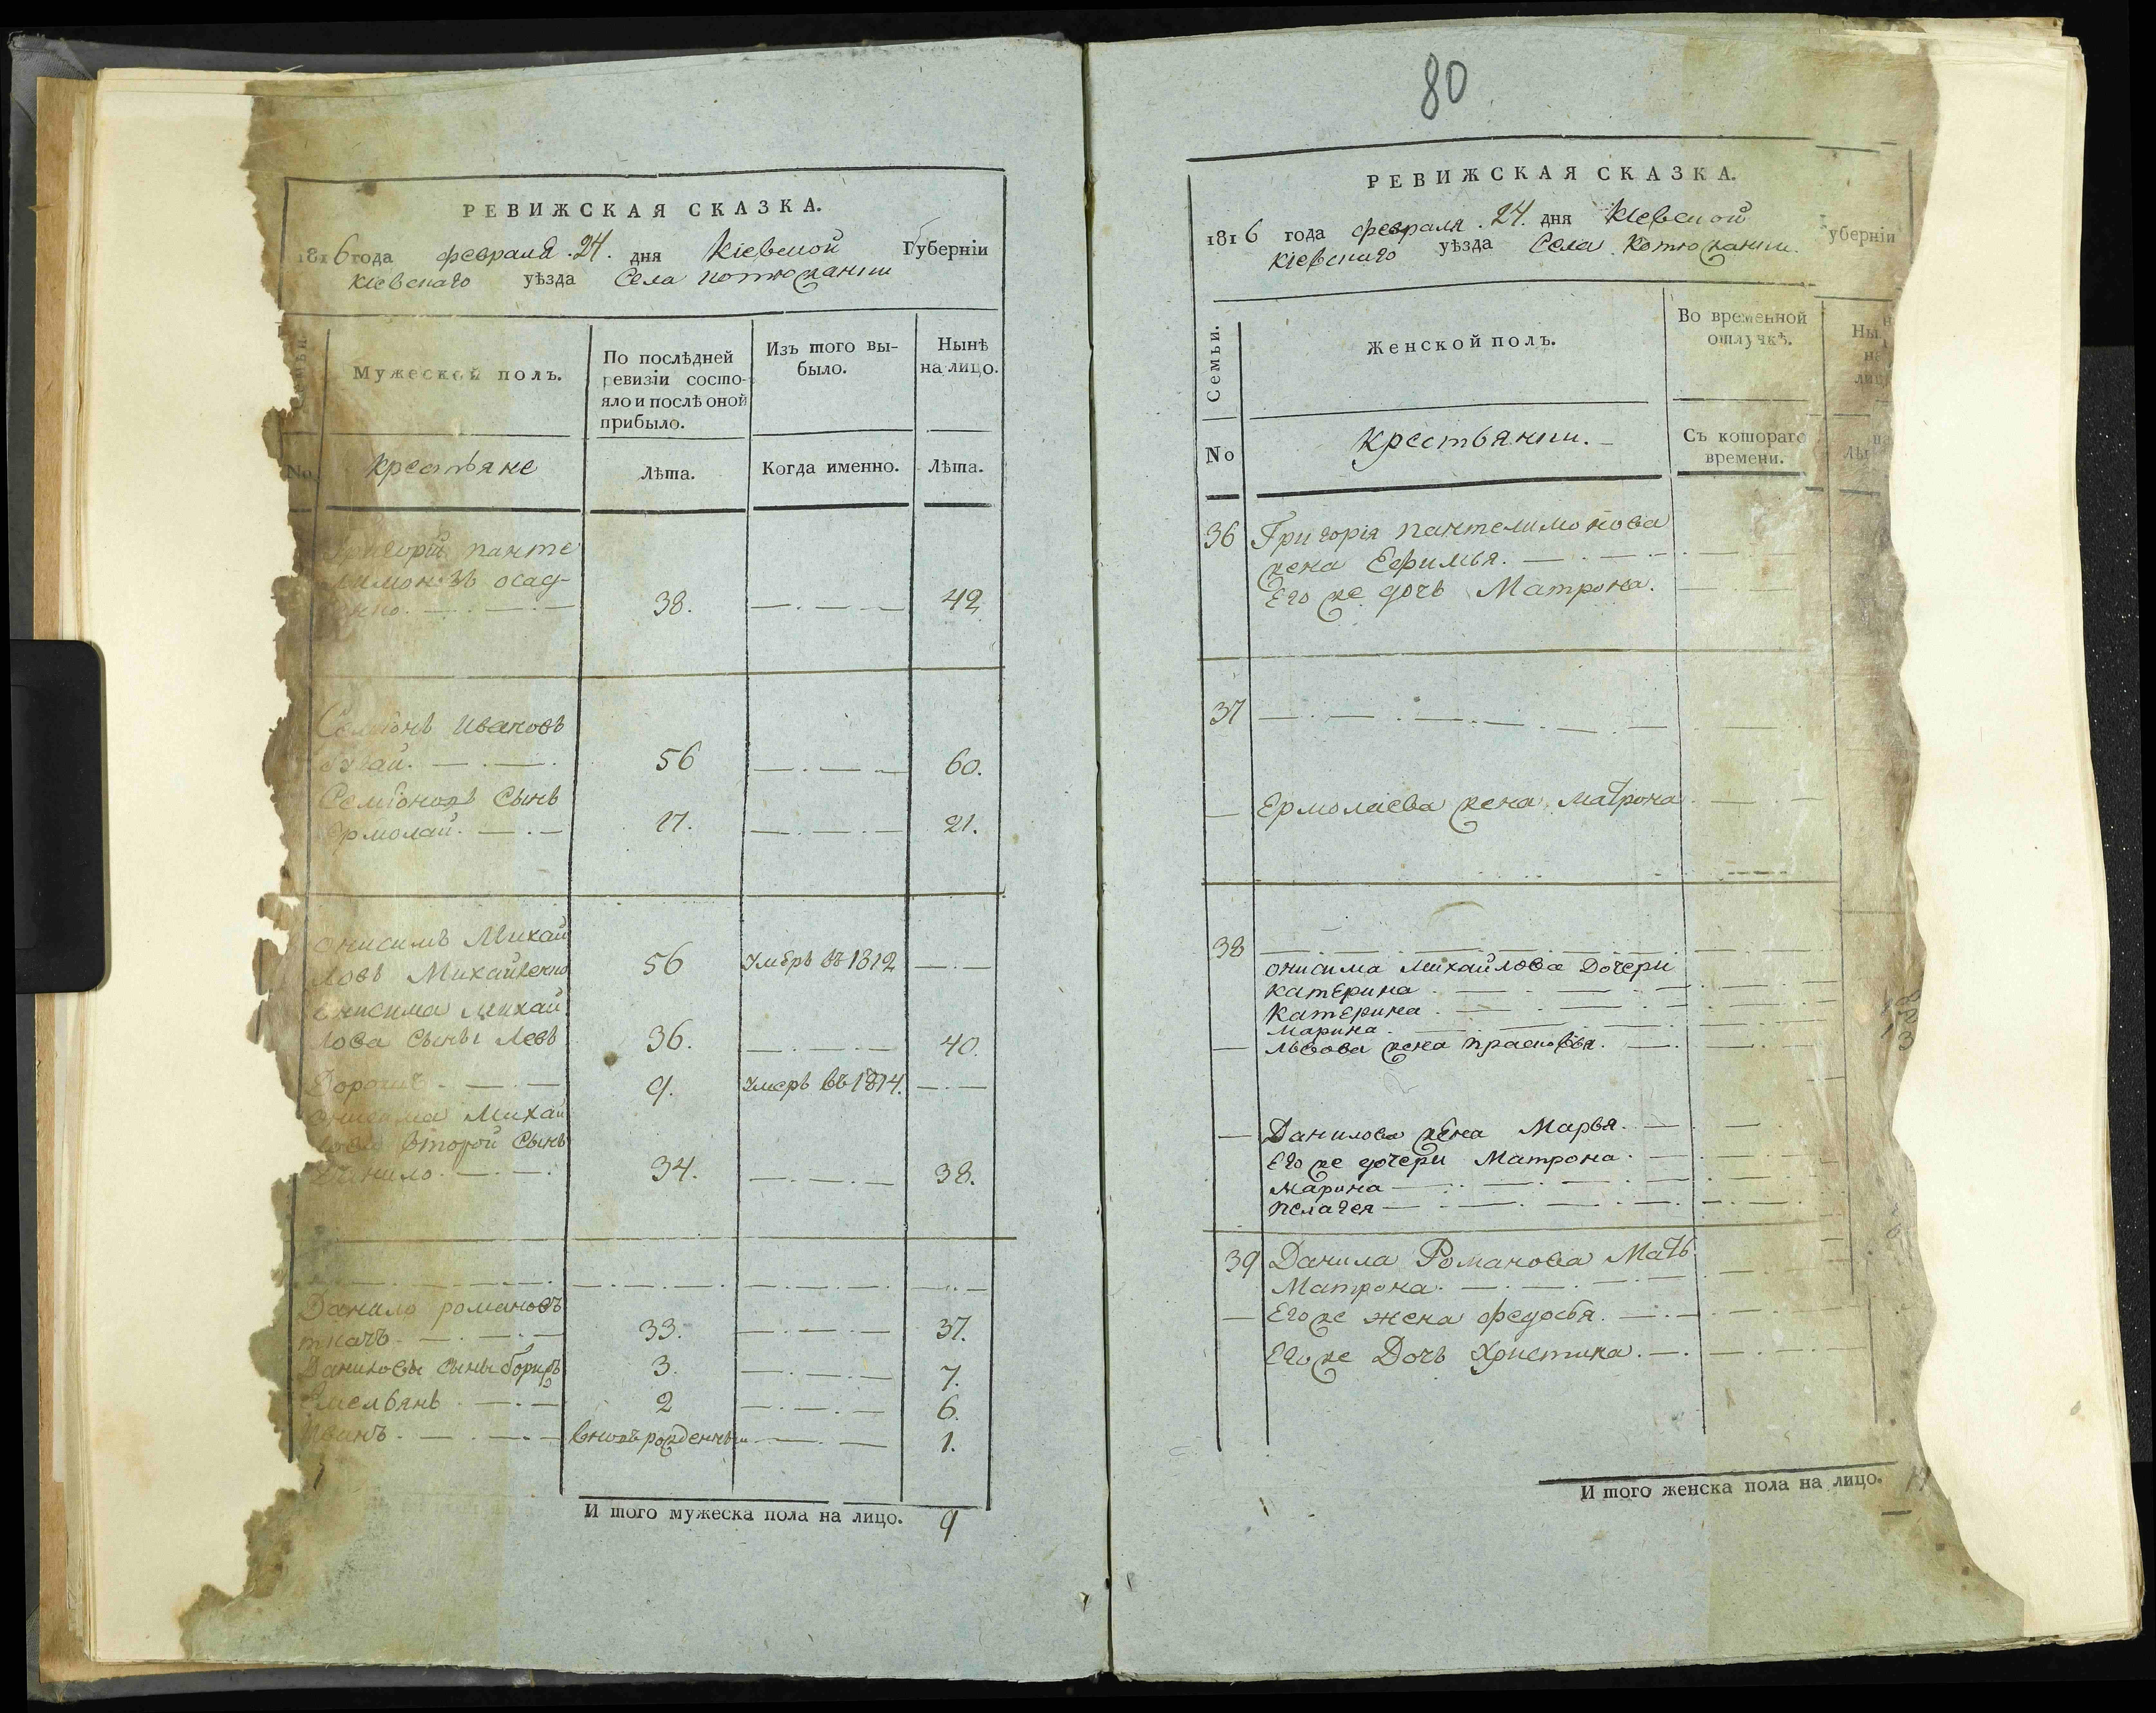 РЕВИЖСКАЯ СКАЗКА.
1816 года февраля 24. дня Кіевской Губерніи
Кіевскаго уѣзда Села Котюжанки
Семьи.
Мужеской полъ.
По послѣдней
ревизіи состо-
яло и послѣ оной
прибыло.
Изъ того вы-
было.
Нынѣ
на лицо.
No
крестьяне
Лѣта.
Когда именно.
Лѣта.
Григорій панте
лимоновъ осад-
38. 42
Семіонъ Ивановъ
56 60.
Семіоновъ Сынъ
Ермолай. 17. 21.
Онисимъ Михай
ловъ Михайленко 56 Умѣръ въ 1812
Онисима Михай
лова Сыны Левъ 36. 40.
9. Умеръ въ 1814.
Онисима Михай
лова второй Сынъ
Данило. 34. 38.
Данило романовъ
ткачъ 33. 37.
Даниловы сыны борисъ 3. 7.
Емельянъ 2 6.
Иванъ. вновь рожденный 1.
И того мужеска пола на лицо. 9
80
РЕВИЖСКАЯ СКАЗКА.
1816 года февраля 24. дня Кіевской уберніи
Кіевскаго уѣзда Села Котюжанки.
Семьи.
Женской полъ.
Во временной
отлучкѣ.
No
крестьянки.
Съ котораго
времени.
36 Григорія пантелимонова
жена Ефимья.
Его же дочь Матрона.
37
Ермолаева жена Матрона
38
онисима Михайлова Дочери
катерина
Катерина
Марина
Львова жена прасковья.
Данилова жена Марья.
Его же дочери Матрона.
Марина
пелагея
39 Данила Романова Мать
Матрона.
Его же жена федосья.
Его же Дочь Христина.
И того женска пола на лицо.